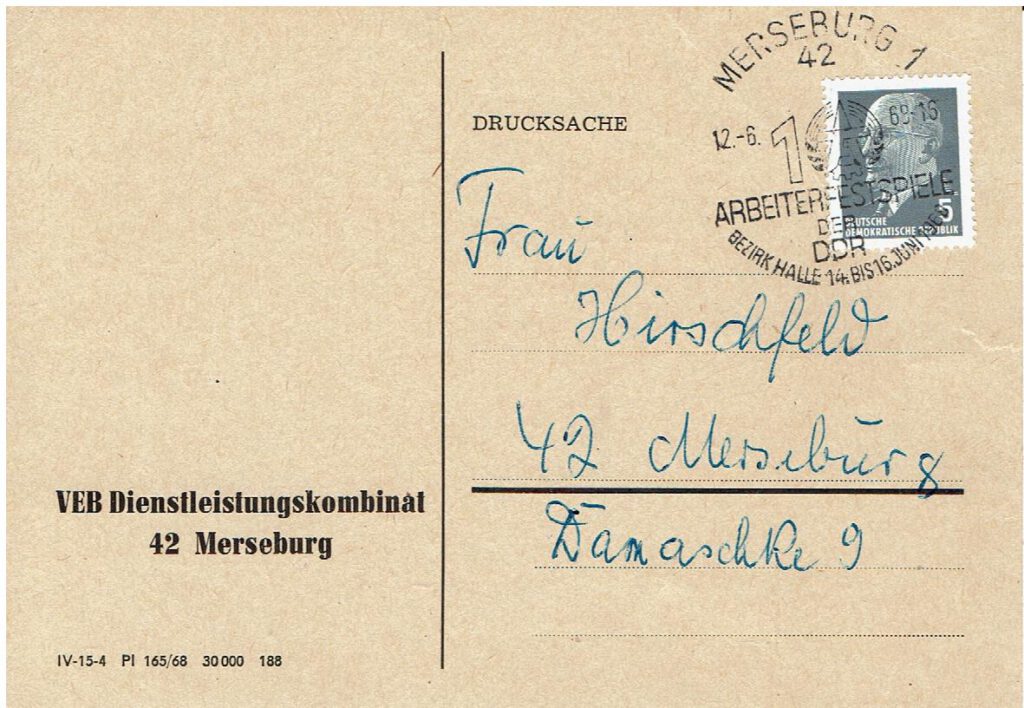 MERSEBURG 1
42
12.-6. 68-16
10
ARBEITERFESTSPIELE
DER
DDR
BEZIRK HALLE 14. BIS 16. JUNI 1968
5
DEUTSCHE
DEMOKRATISCHE REPUBLIK
DRUCKSACHE
Frau
Hirschfeld
42 Merseburg
Damaschke 9
VEB Dienstleistungskombinat
42 Merseburg
IV-15-4 PI 165/68 30000 188